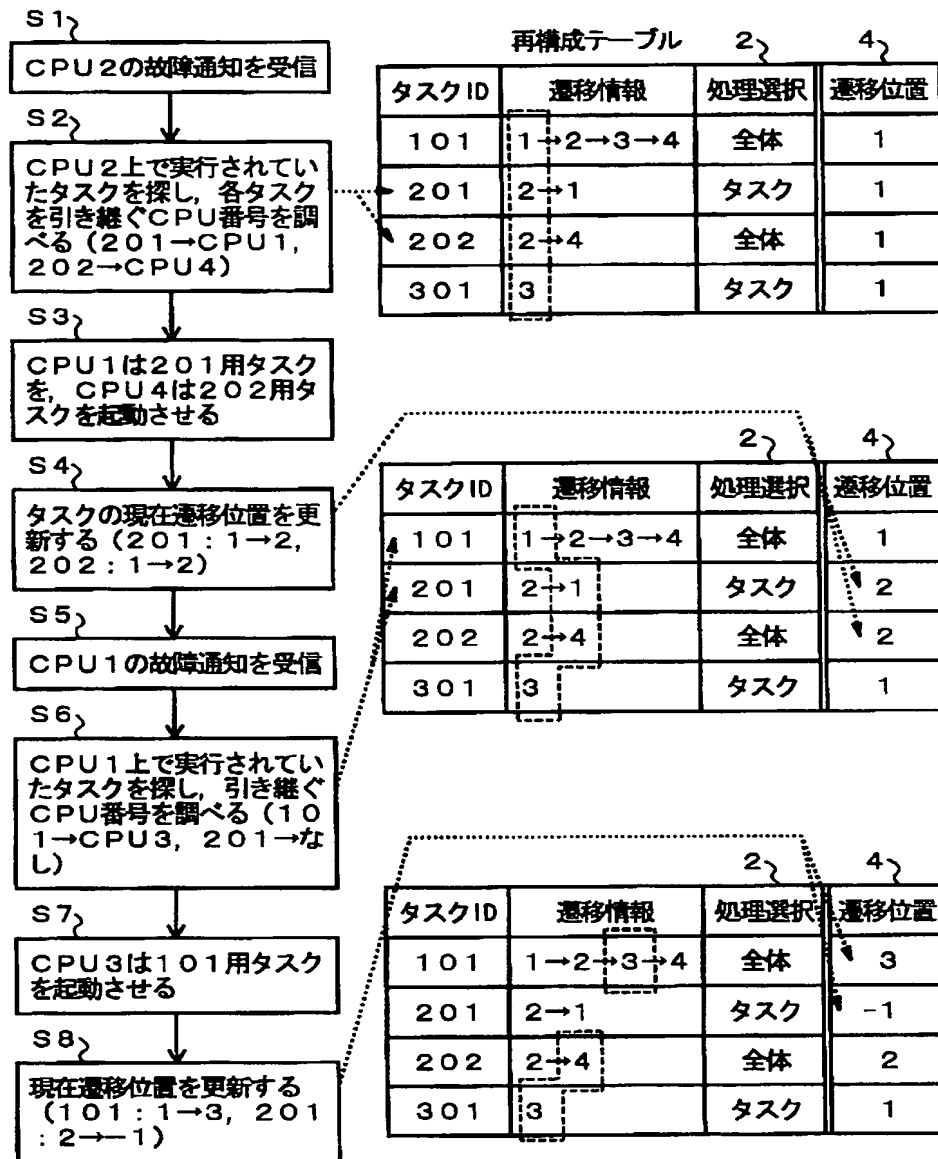 S1
CPU2の故障通知を受信
S2
CPU2上で実行されてい
たタスクを探し,各タスク
を引き継ぐCPU番号を調
べる(201→CPU1,
202→CPU4)
S3
CPU1は201用タスク
を,CPU4は202用タ
スクを起動させる
S4
タスクの現在遷移位置を更
新する(201:1→2,
202:1→2)
S5
CPU1の故障通知を受信
S6
CPU1上で実行されてい
たタスクを探し,引き継ぐ
CPU番号を調べる(10
1→CPU3,201→な
し)
S7
CPU3は101用タスク
を起動させる
S8
現在遷移位置を更新する
(101:1→3,201
:2→-1)
再構成テーブル 2 4
タスクID 遷移情報 処理選択 遷移位置
101 1→2→3→4 全体 1
201 2→1 タスク 1
202 2→4 全体 1
301 3 タスク 1
2 4
タスクID 遷移情報 処理選択 遷移位置
101 1→2→3→4 全体 1
201 2→1 タスク 2
202 2→4 全体 2
301 3 タスク 1
2 4
タスクID 遷移情報 処理選択 遷移位置
101 1→2→3→4 全体 3
201 2→1 タスク -1
202 2→4 全体 2
301 3 タスク 1